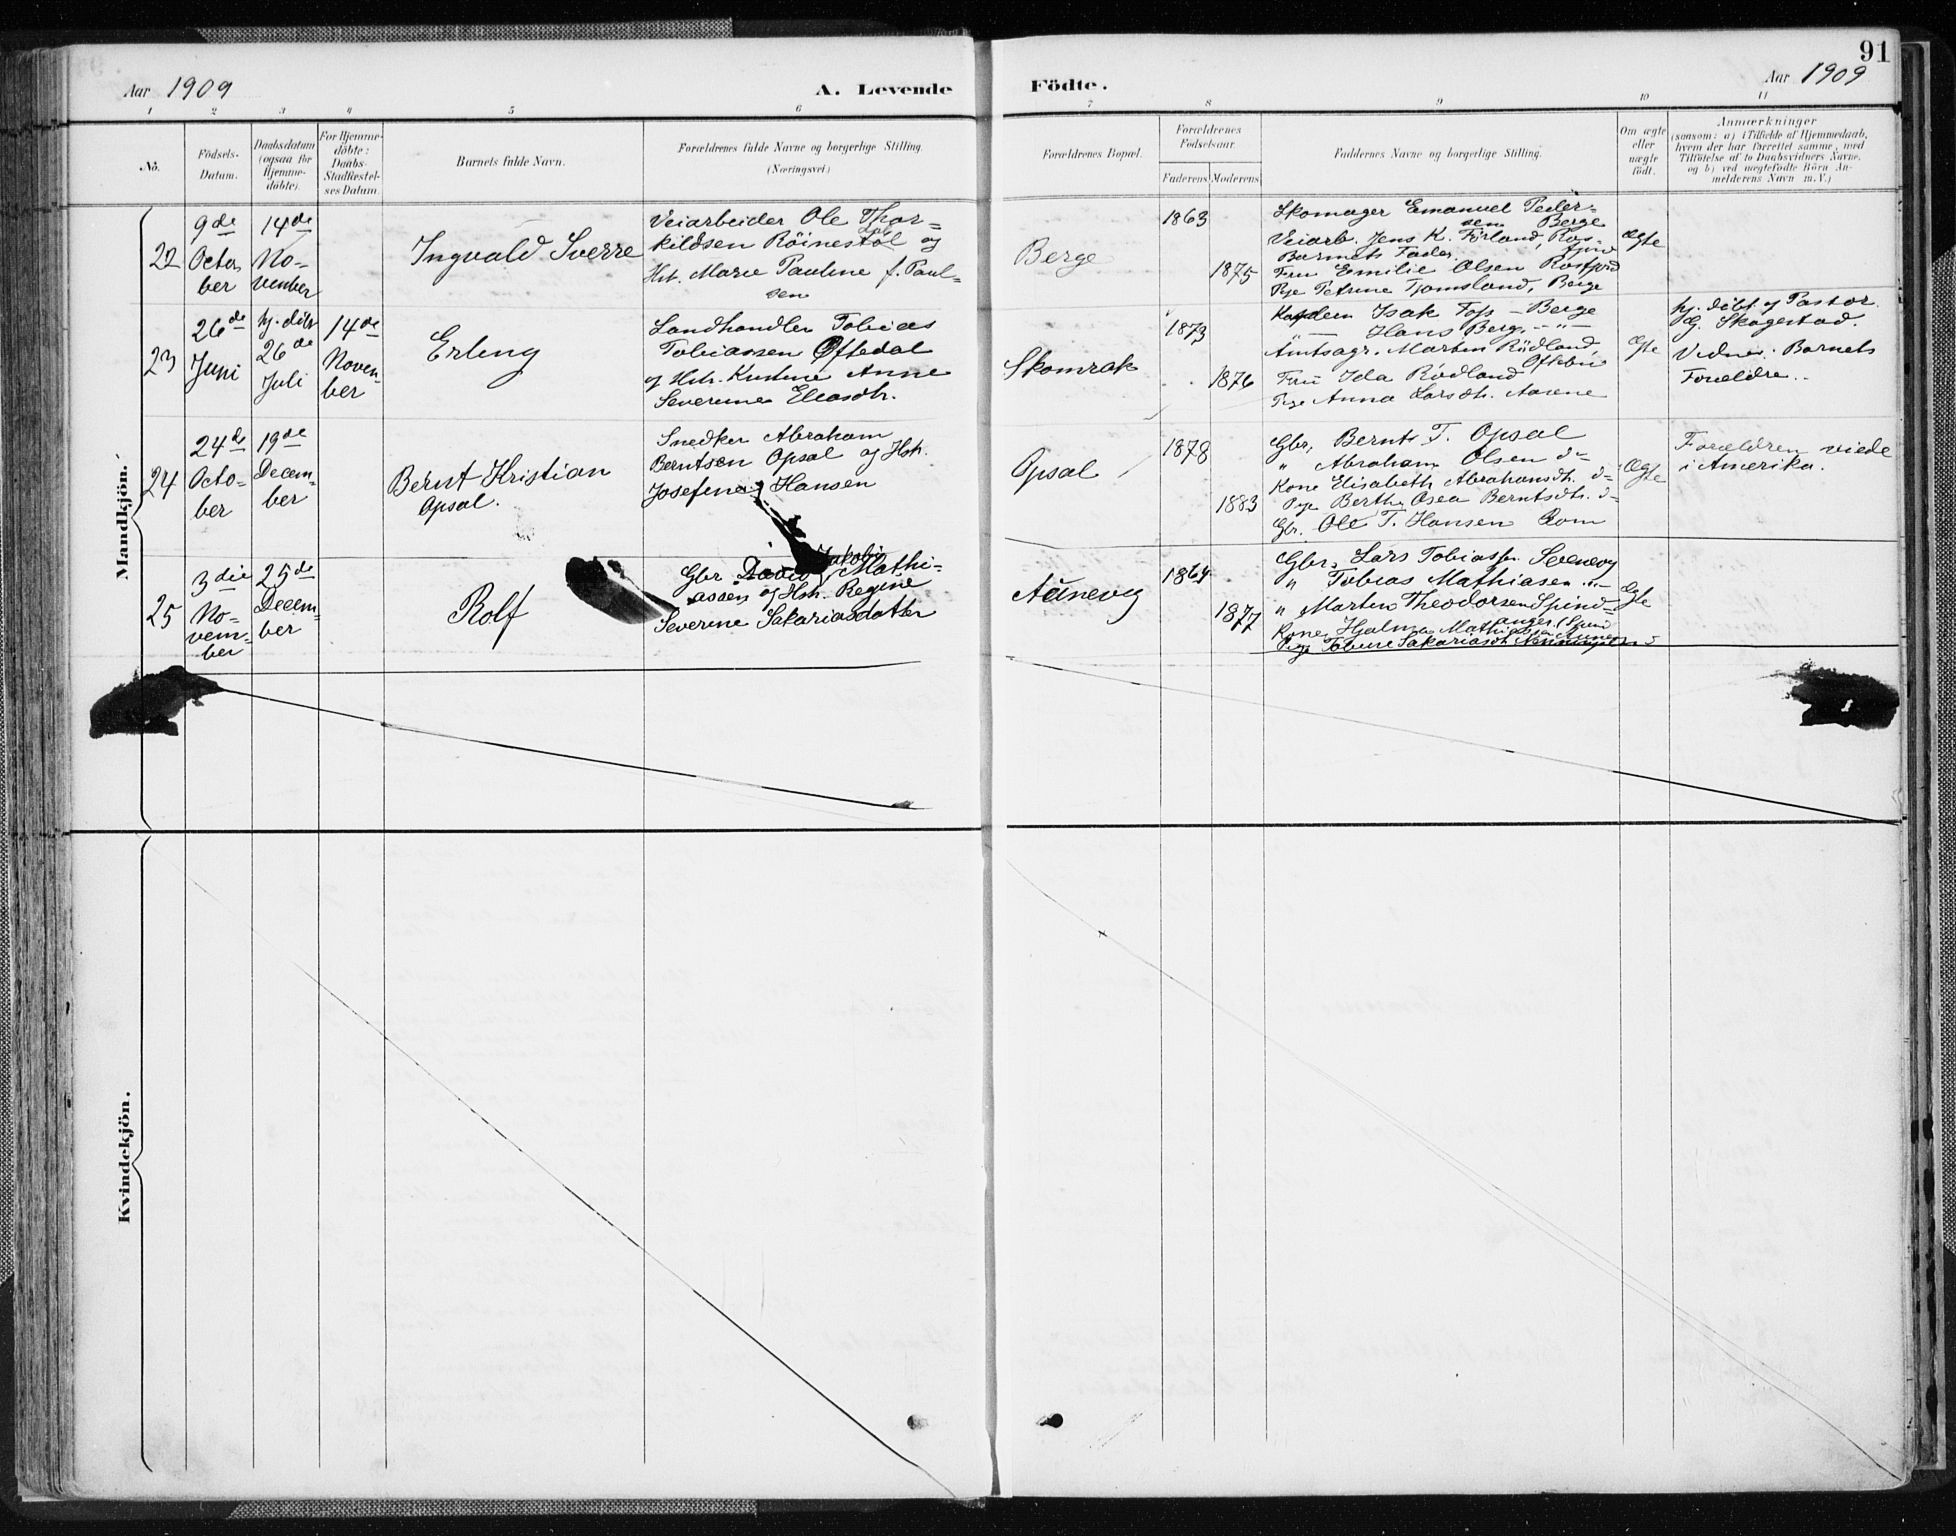 91
Aar 1909
A. Levende
Födte.
Aar 1909
1 2 3 4 5 6 7 8 9 10 11
No.
Födsels-
Datum.
Daabsdatum
(ogsaa for
Hjemme-
döbte).
For Hjemme-
döbte:
Daabs-
Stadfæstel-
ses Datum.
Barnets fulde Navn.
Forældrenes fulde Navne og borgerlige Stilling.
(Næringsvei.)
Forældrenes Bopæl.
Forældrenes
Födselsaar.
Faderens Moderens
Faddernes Navne og borgerlige Stilling.
Om ægte
eller
uægte
födt.
Anmærkninger
(saasom: a) i Tilfælde af Hjemmedaab,
hvem der har forrettet samme, med
Tilföielse af to Daabsvidners Navne,
og b) ved uægtefödte Börn An-
melderens Navn m. V.)
Mandkjön.
22
9de
Octo
ber
14de
No-
vember
Ingvald Sverre
Veiarbeider Ole Thor-
kildsen Röinestöl og
Hst. Marie Pauline f. Paul-
sen
Berge
1863
1875
Skomager Emanuel Peder-
sen Berge
Veiarb. Jens K. Förland, Ros-
fjord
Barnets Fader.
Fru Emilie Olsen Rosfjord
Pge Petrine Tjomsland, Berge
Ægte
23
26de
Juni
hj. döbt
26de
Juli
14de
Novem-
ber
Erling
Landhandler Tobias
Tobiassen Oftedal
og Hst. Anne
Severine Eliasdtr.
Skomrak
1873
1876
Isak Foss - Berge
— Hans Berg. - " -
Amtsagr. Marten Rödland
Fru Ida Rödland
Pge Anna Larsdtr. Aasene
Ægte
hj. döbt af Pastor
G. Skagestad.
Vidner: Barnets
Forældre.
24
24de
Octo-
ber
19de
Decem-
ber
Bernt Kristian
Opsal.
Snedker Abraham
Berntsen Opsal og Hst.
Josefine Hansen
Opsal
1878
1883
Gbr. Bernt T. Opsal
" Abraham Olsen d-
Kone Elisabeth Abrahamsdtr. d-
Pge Berthe Osea Berntsdtr. d-
Gbr. Ole T. Hansen Rom
Ægte
Forældren viede
i Amerika.
25
3die
No-
vem-
ber
25de
Decem-
ber
Rolf
Gbr David Jakobi Mathi-
assen og Hst. Regine
Severine Sakariasdatter
Aunevig
1864
1877
Gbr. Lars Tobiassen
" Tobias Mathiasen - " -
" Martin Theodorsen Spind-
anger, Spind
Kone Hjalma Mathiassen
Pge Tobine Sakariasdtr.
Ægte
Kvindekjön.